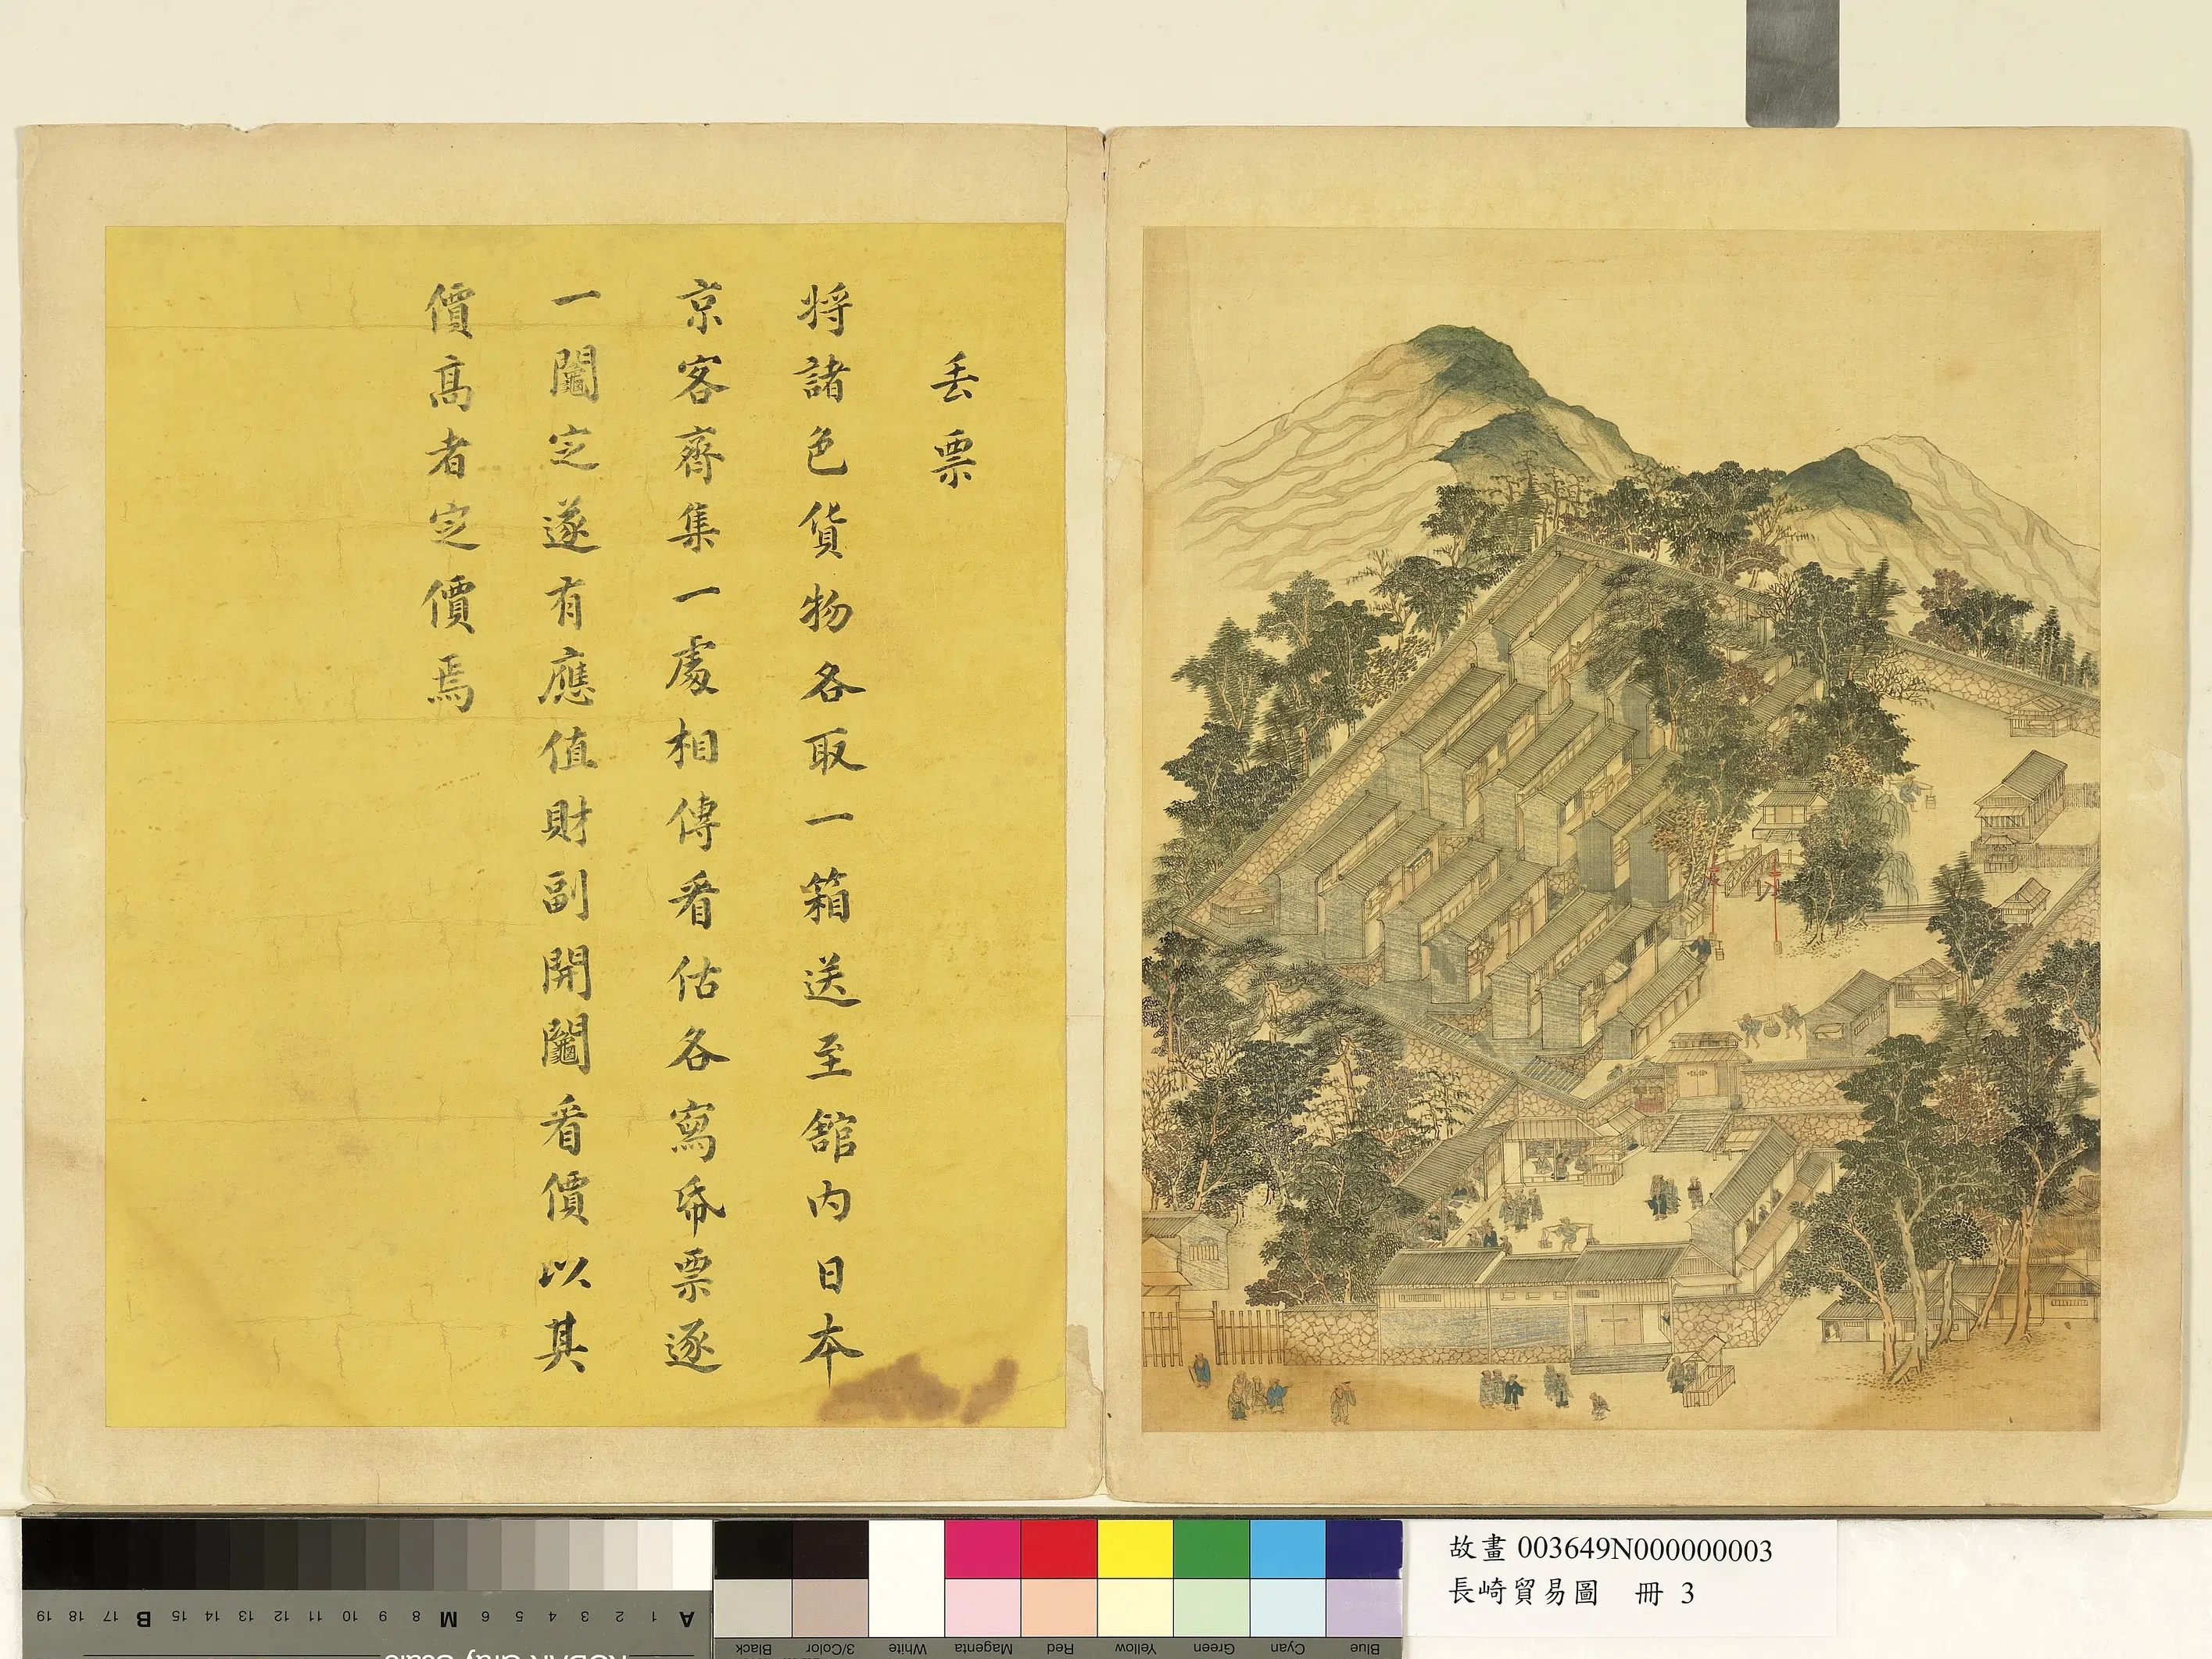 丢票
将諸色貨物各取一箱送至舘内日本
京客齊集一處相傳看估各寫帋票逐
一鬮定遂有應值財副開鬮看價以其
價髙者定價焉
故畫 003649N000000003
長崎貿易圖 冊 3
A 1 2 3 4 5 6 M 8 9 10 11 12 13 14 15 B 17 18 19
Blue Cyan Green Yellow Red Magenta White 3/Color Black